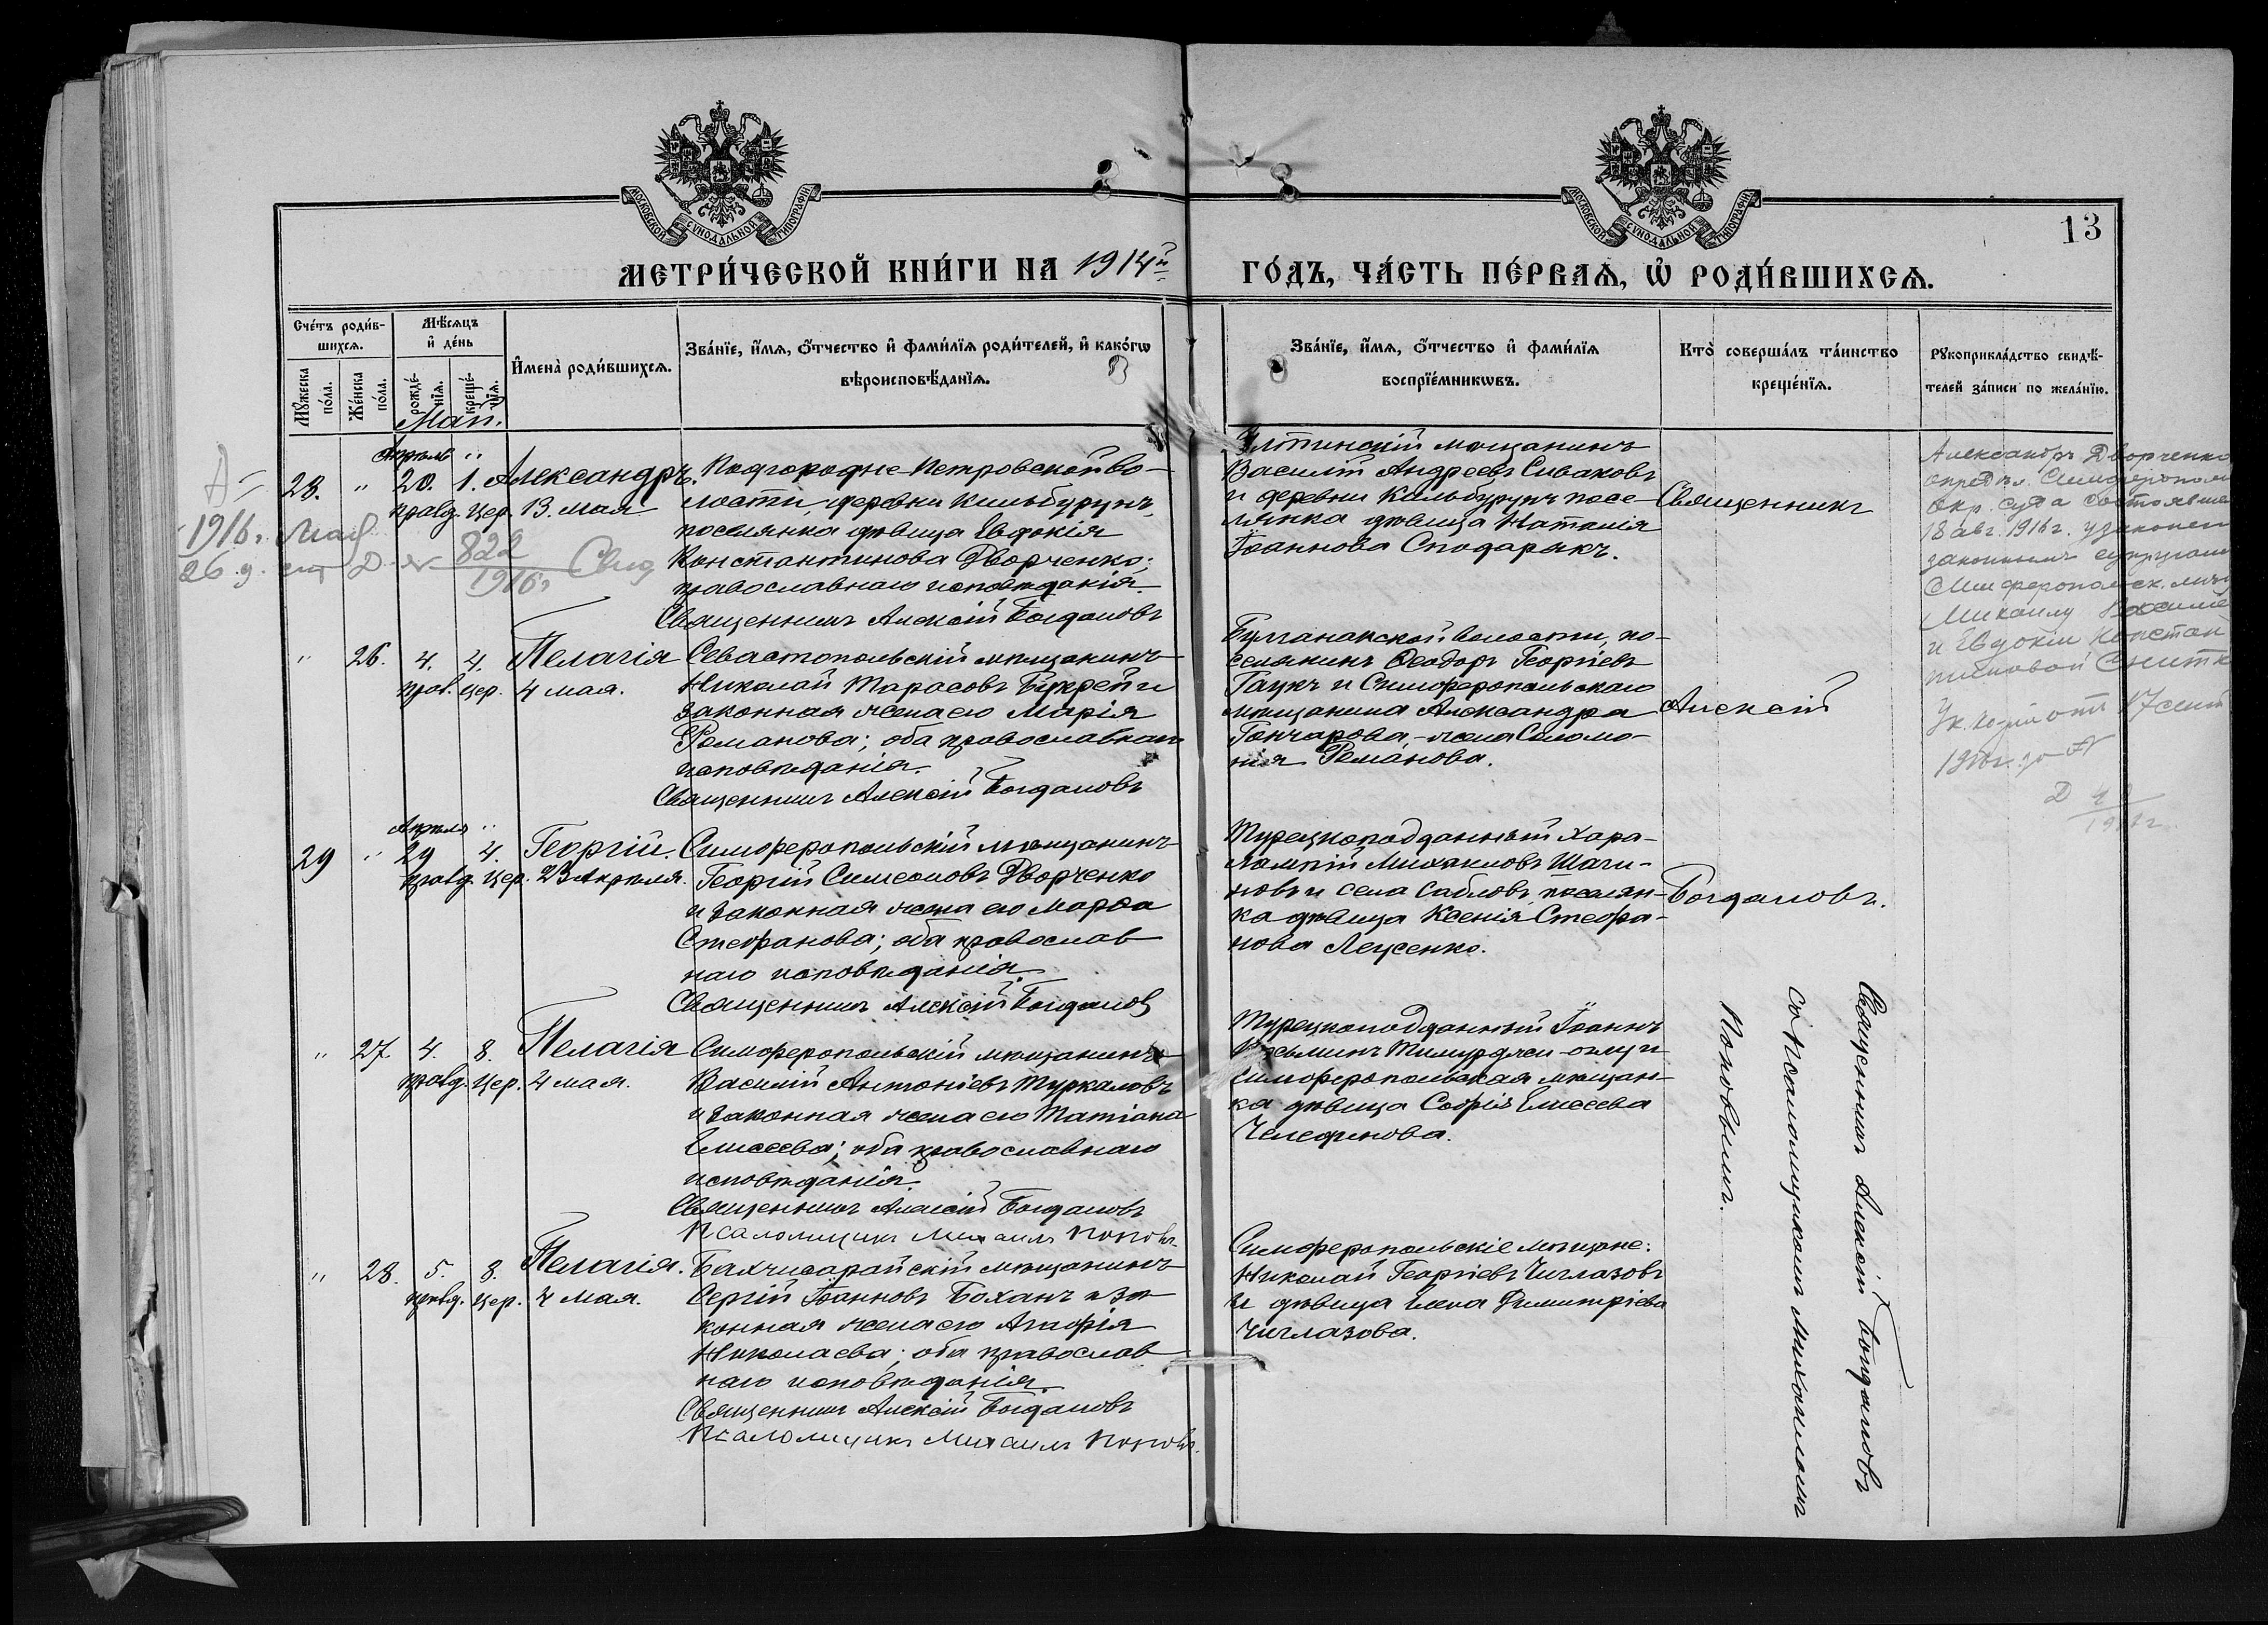 МОСКОВСКОЙ СУНОДАЛЬНОЙ ТИПОГРАФІИ
МОСКОВСКОЙ СУНОДАЛЬНОЙ ТИПОГРАФІИ
13
МЕТРИ́ЧЕСКОЙ КНИ́ГИ НА 1914й
ГО́ДЪ, ЧА́СТЬ ПЕ́РВАѦ, Ѡ РОДИ́ВШИХСѦ.
Сче́тъ роди́в-
шихсѧ.
Мꙋ́жеска по́ла.
Же́нска по́ла.
Мѣ́сѧцъ
и҆ де́нь
рожде́-
нїѧ.
креще́-
нїѧ.
И҆мена̀ роди́вшихсѧ.
Зва́нїе, и҆́мѧ, ѻ҆́тчество и҆ фами́лїѧ роди́телей, и҆ како́гѡ
вѣроисповѣ́данїѧ.
Зва́нїе, и҆́мѧ, ѻ҆́тчество и҆ фами́лїѧ
воспрїе́мникѡвъ.
Кто̀ соверша́лъ та́инство
креще́нїѧ.
Рꙋкоприкла́дство свидѣ́-
телей за́писи по жела́нїю.
Май.
Апрѣль "
28. " 20. 1. Александръ.
правд. цер. 13. мая
Подгородне-Петровской во-
лости, деревни Кильбурунъ,
поселянка дѣвица Евдокія
Константинова Дворченко;
православнаго исповѣданія.
Священникъ Алексій Богдановъ
Ялтинскій мѣщанинъ
Василій Андреевъ Сиваковъ
и деревни Кильбурунъ посе-
лянка дѣвица Наталія
Іоаннова Сподаракъ.
Священникъ
1916г. Мая
26 д. Д. № 822
1916г Свид
Александръ Дворченко
опредѣл. Симферопол
Окр. суда состоявше
18 авг. 1916 г. узаконен
законнымъ супругами
Симферопольск. мѣщ
Михаилу
и Евдокіи Констан
тиновой
17 сент
" 26. 4. 4. Пелагія
прав. цер. 4 мая.
Севастопольскій мѣщанинъ
Николай Тарасовъ Букрей и
законная жена его Марія
Романова; оба православнаго
исповѣданія.
Священникъ Алексій Богдановъ
Булганакской волости, по-
селянинъ Ѳеодоръ Георгіевъ
Гаукъ и Симферопольскаго
мѣщанина Александра
Гончарова, жена Соломо-
нія Романова.
Алексій
Апрѣля "
29 " 29 4. Георгій.
правд. цер. 23 Апрѣля.
Симферопольскій мѣщанинъ
Георгій Симеоновъ Дворченко
и законная жена его Марѳа
Стефанова; оба православ
наго исповѣданія.
Священникъ Алексій Богдановъ
Турецкоподданный Хара-
лампій Михаиловъ Шаги-
новъ и села Сабловъ, поселян-
ка дѣвица Ксенія Стефа-
нова Леусенко.
Богдановъ.
" 27. 4. 8. Пелагія
правд. цер. 4 мая.
Симферопольскій мѣщанинъ
Василій Антоніевъ Туркаловъ
и законная жена его Татіана
Елисеева; оба православнаго
исповѣданія.
Священникъ Алексій Богдановъ
Псаломщикъ Михаилъ Поповъ.
Турецкоподданный Іоаннъ
оглу и
симферопольская мѣщан-
ка дѣвица Софія Елисеева
Челединова.
" 28. 5. 8. Пелагія.
правд. цер. 4 мая.
Бахчисарайскій мѣщанинъ
Сергій Іоанновъ Боханъ и за
конная жена его Агафія
Николаева; оба православ
наго исповѣданія.
Священникъ Алексій Богдановъ
Псаломщикъ Михаилъ Поповъ.
Симферопольскіе мѣщане:
Николай Георгіевъ Чиглазовъ
и дѣвица Елена Димитріева
Чиглазова.
Священникъ Алексій Богдановъ
съ псаломщикомъ Михаиломъ
Поповымъ.